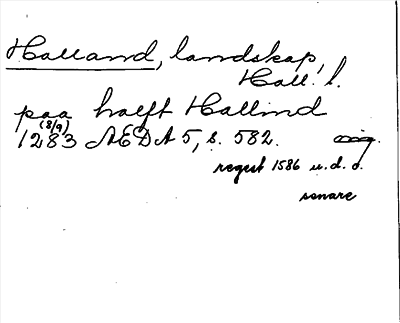 Halland, landskap,
Hall. l.
paa halft Hallind
(8/9)
1283 ÆDA 5, s. 582. orig.
regest 1586 u.d.o.
senare